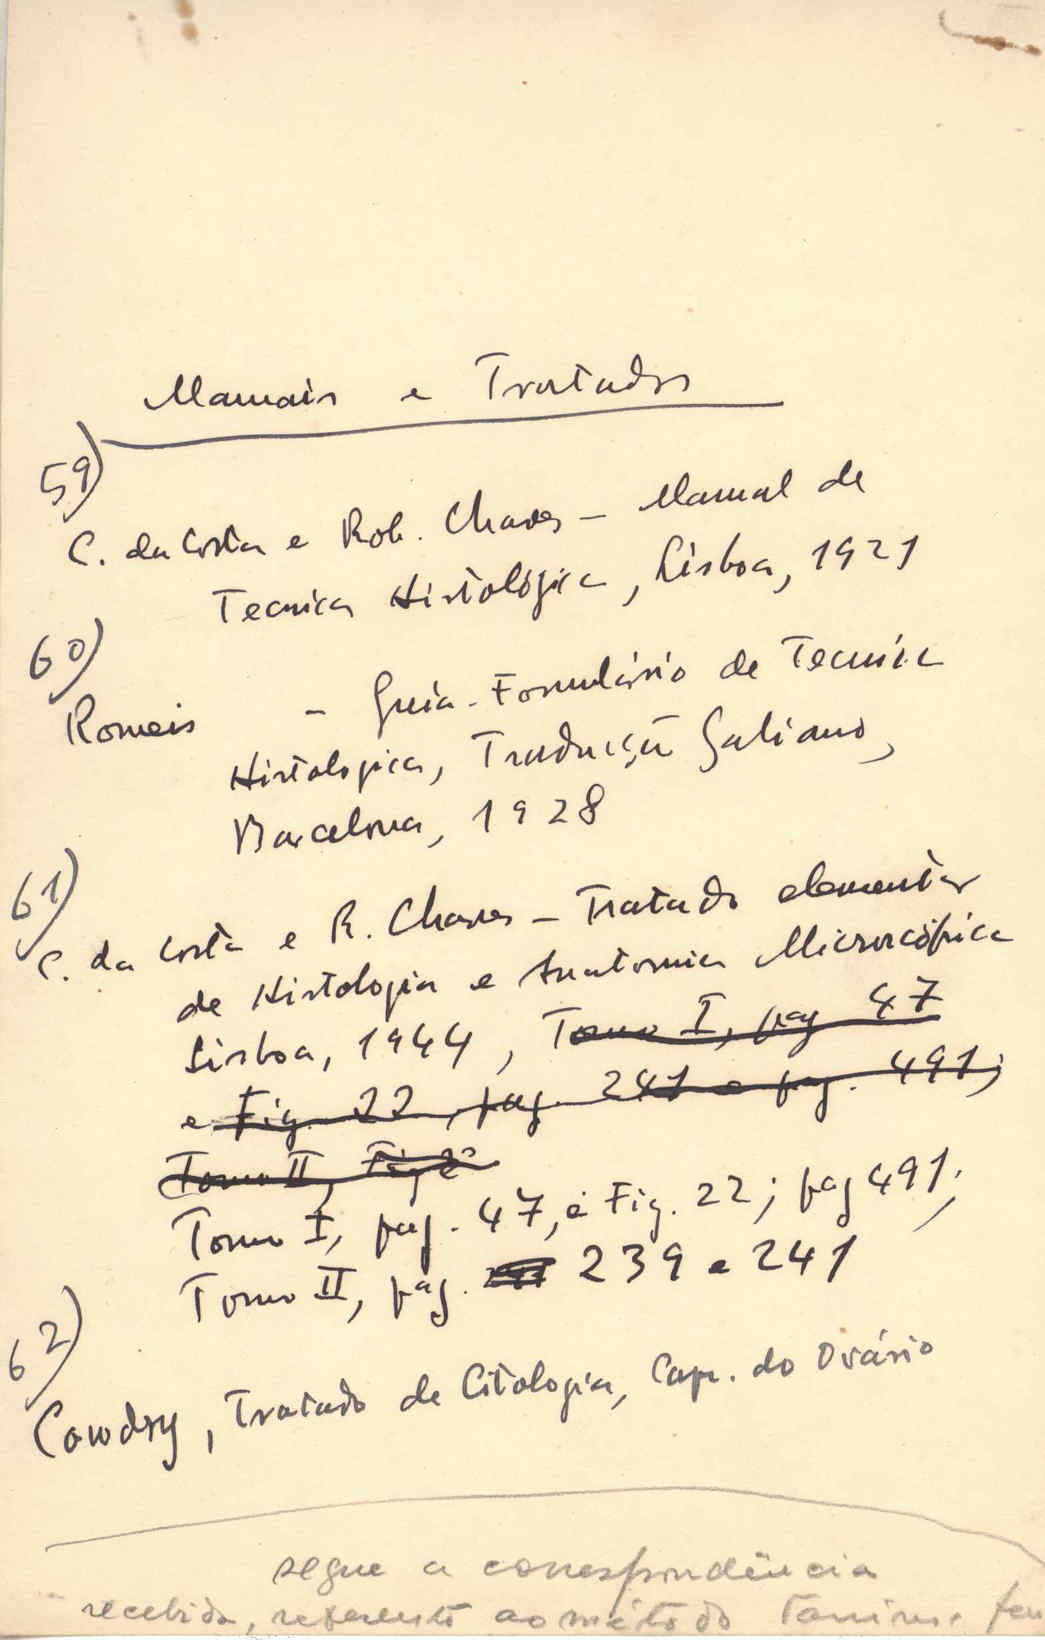 Manuais e Tratados
59)
C. da Costa e Rob. Chaves – Manual de
Tecnica Histológica, Lisboa, 1921
60)
Romeis – Guia-Formulário de Tecnica
Histologica, Traduiçã Galiano,
Barcelona, 1928
61)
C. da Costa e R. Chaves – Tratado elementar
de Histologia e Anatomia Microscópica
Lisboa, 1944, Tomo I, pag 47
e Fig. 22, pag. 241 e pag. 491;
Tomo II, Fig
Tomo I, pag. 47, e Fig. 22; pag 491;
Tomo II, pag. 239 e 241
62)
Cowdry, Tratado de Citologia, Cap. do Ovário
segue a correspondência
recebida, referente ao método Tanino-